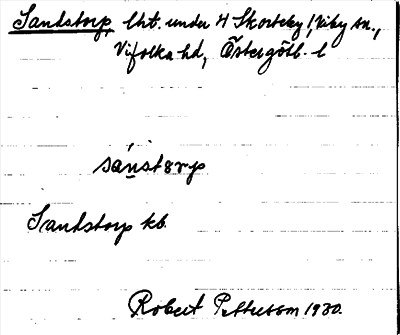 Sandstorp, lht. under 4 Skorteby, Viby sn.,
Vifolka hd, Östergötl. l
sánstorp
Sandstorp kb.
Robert Pettersson 1930.